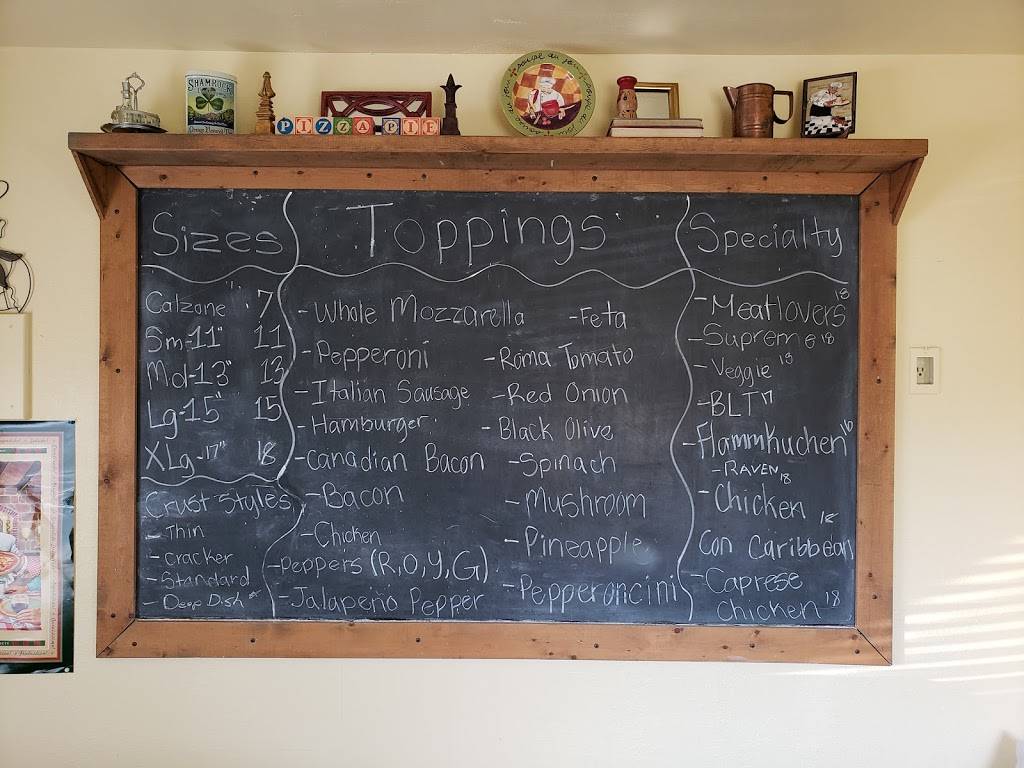 SHAMROCK
PIZZA PIE
soupe du jour
Sizes
Calzone 7
Sm-11" 11
Md-13" 13
Lg-15" 15
XLg-17" 18
Crust Styles
- Thin
- Cracker
- Standard
- Deep Dish*
Toppings
- Whole Mozzarella
- Pepperoni
- Italian Sausage
- Hamburger
- Canadian Bacon
- Bacon
- Chicken
- Peppers (R,O,Y,G)
- Jalapeño Pepper
- Feta
- Roma Tomato
- Red Onion
- Black Olive
- Spinach
- Mushroom
- Pineapple
- Pepperoncini
Specialty
- Meatlovers 18
- Supreme 18
- Veggie 18
- BLT 17
- Flammkuchen 16
- RAVEN 18
- Chicken
Con Caribbean 18
- Caprese
Chicken 18